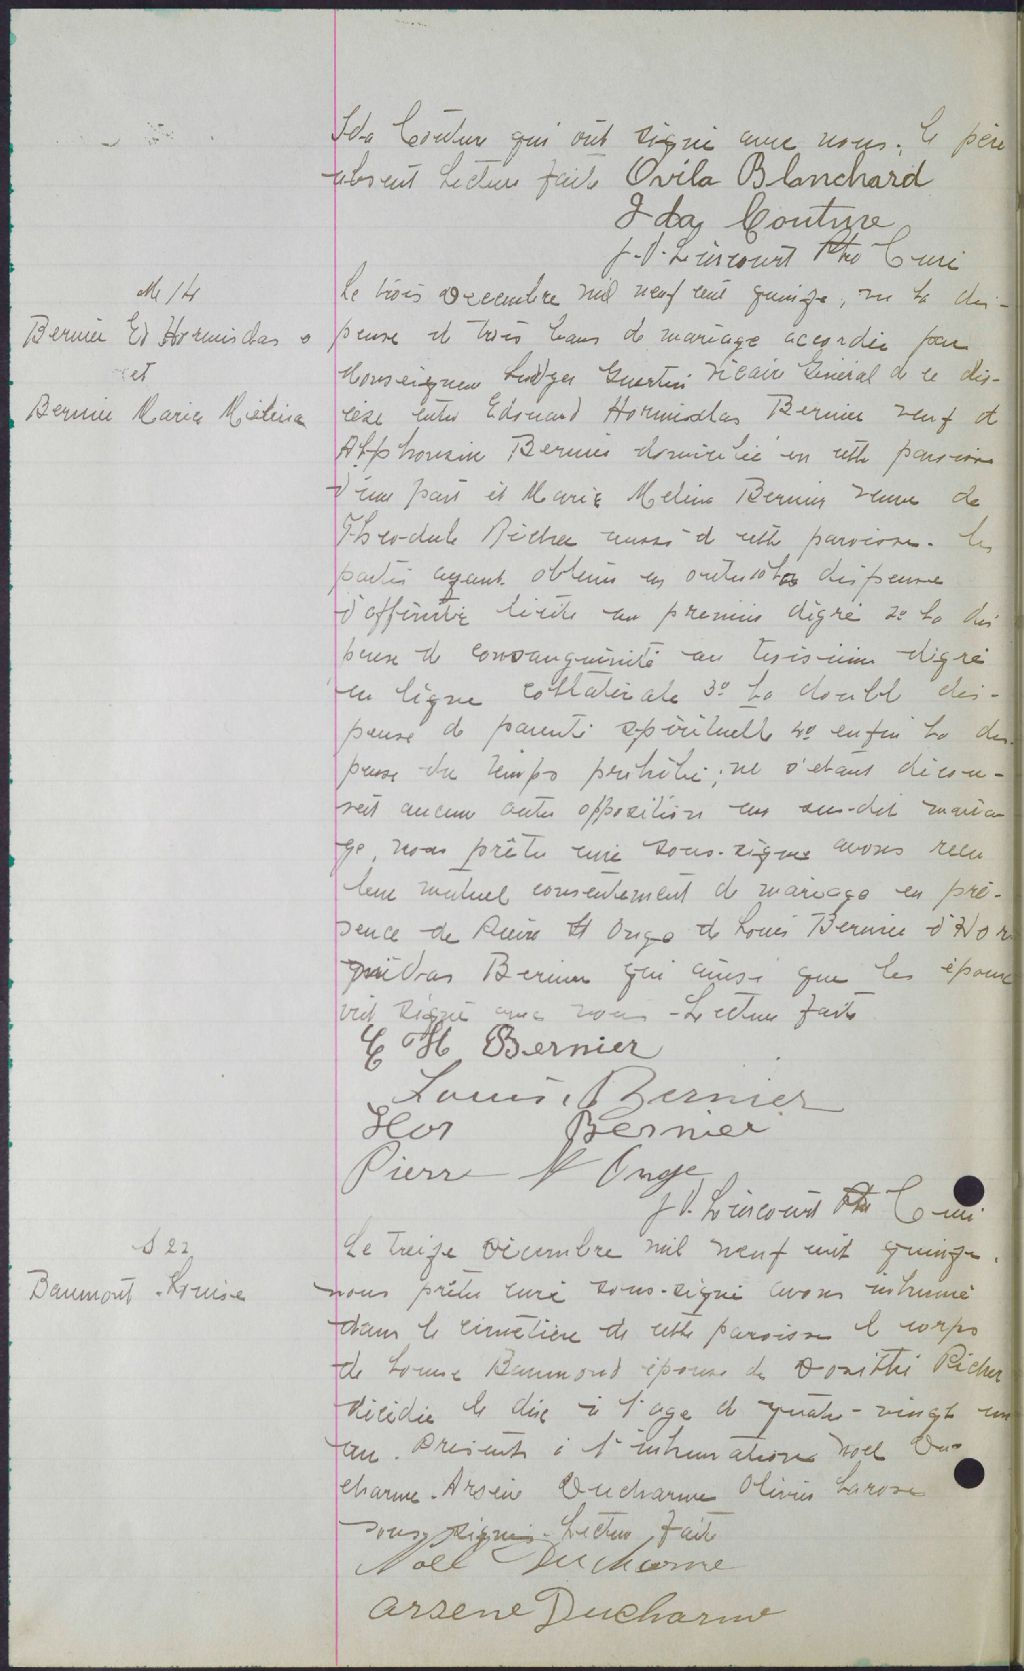 Ida Couture qui ont signé avec nous, le père
absent Lecture faite Ovila Blanchard
Ida Couture
J. V. Lincourt Ptre Curé
M 14
Bernier Ed Hormisdas
et
Bernier Marie Mélina
Le trois Décembre mil neuf cent quinze, vu la dis-
pense de trois bans de mariage accordée par
Monseigneur Vicaire Général de ce dio-
cèse entre Edouard Hormisdas Bernier veuf de
Alphonsine Bernier domicilié en cette paroisse
d'une part et Marie Melina Bernier veuve de
Théodule Richer aussi de cette paroisse. les
parties ayant obtenu en outre 1o la dispense
d'affinité licite au premier degré 2o la dis
pense de consanguinité au troisième degré
en ligne collatérale 3o la double dis-
pense de parenté spirituelle 4o enfin la dis-
pense du temps prohibé; ne s'étant décou-
vert aucune autre opposition au sus-dit maria
ge, nous prêtre curé sous-signé avons reçu
leur mutuel consentement de mariage en pré-
sence de Pierre St Onge de Louis Bernier d'Hor
midas Bernier qui ainsi que les époux
ont signé avec nous - Lecture faite
E H Bernier
Louis Bernier
Hor Bernier
Pierre St Onge
J V. Lincourt Ptre Curé
S 22
Baumont - Louise
Le treize Décembre mil neuf cent quinze.
nous prêtre curé sous-signé avons inhumé
dans le cimetière de cette paroisse le corps
de Louise Baumond épouse de Dosithé Richer
décédée le dix à l'age de quatre-vingt un
an. Présents à l'inhumation Noel Du-
charme - Arsène Ducharme Olivier Larose
sous signés - Lecture faite
Noel Ducharme
Arsene Ducharme